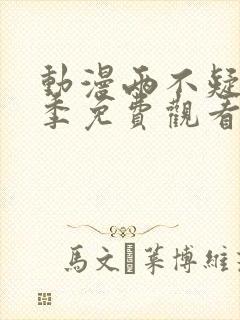 動漫兩不疑
季免費觀看
馬文·萊博維